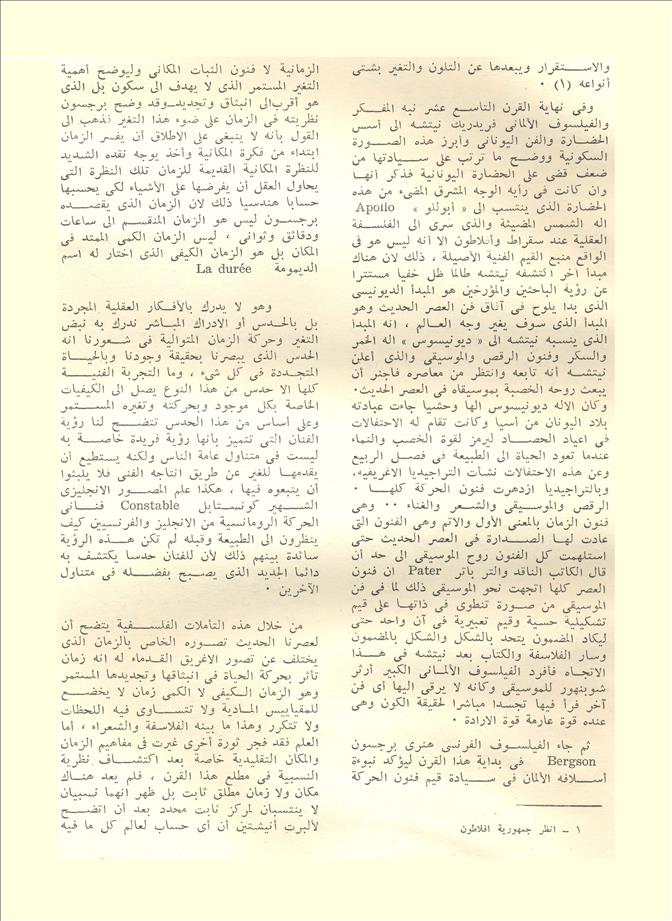 والاستقرار ويبعدها عن التلون والتغير بشتى
أنواعه (١) ٠
وفى نهاية القرن التاسع عشر نبه المفكر
والفيلسوف الألمانى فريدريك نيتشه الى أسس
الحضارة والفن اليونانى وأبرز هذه الصورة
السكونية ووضح ما ترتب على سيادتها من
ضعف قضى على الحضارة اليونانية فذكر أنها
وان كانت فى رأيه الوجه المشرق المضىء من هذه
الحضارة الذى ينتسب الى « أبوللو » Apoilo
اله الشمس المضيئة والذى سرى الى الفلسفة
العقلية عند سقراط وأفلاطون الا أنه ليس هو فى
الواقع منبع القيم الفنية الأصيلة ، ذلك لان هناك
مبدأ آخر اكتشفه نيتشه طالما ظل خفيا مستترا
عن رؤية الباحثين والمؤرخين هو المبدأ الديونيسى
الذى بدا يلوح فى آفاق فن العصر الحديث وهو
المبدأ الذى سوف يغير وجه العالم ، انه المبدأ
الذى ينسبه نيتشه الى « ديونيسوس » اله الخمر
والسكر وفنون الرقص والموسيقى والذى أعلن
نيتشه أنه تابعه وانتظر من معاصره فاجنر أن
يبعث روحه الخصبة بموسيقاه فى العصر الحديث٠
وكان الاله ديونيسوس الها وحشيا جاءت عبادته
بلاد اليونان من آسيا وكانت تقام له الاحتفالات
فى أعياد الحصاد ليرمز لقوة الخصب والنماء
عندما تعود الحياة الى الطبيعة فى فصل الربيع
وعن هذه الاحتفالات نشأت التراجيديا الاغريقية،
وبالتراجيديا ازدهرت فنون الحركة كلها ٠
الرقص والموسيقى والشعر والغناء ٠٠ وهى
فنون الزمان بالمعنى الأول والأتم وهى الفنون التى
عادت لها الصدارة فى العصر الحديث حتى
استلهمت كل الفنون روح الموسيقى الى حد أن
قال الكاتب الناقد والتر باتر Pater ان فنون
العصر كلها اتجهت نحو الموسيقى ذلك لما فى فن
الموسيقى من صورة تنطوى فى ذاتها على قيم
تشكيلية حسية وقيم تعبيرية فى آن واحد حتى
ليكاد المضمون يتحد بالشكل والشكل بالمضمون
وسار الفلاسفة والكتاب بعد نيتشه فى هذا
الاتجاه فأفرد الفيلسوف الألمانى الكبير أرثر
شوبنهور للموسيقى وكأنه لا يرقى اليها أى فن
آخر فرأ فيها تجسدا مباشرا لحقيقة الكون وهى
عنده قوة عارمة قوة الارادة ٠
ثم جاء الفيلسوف الفرنسى هنرى برجسون
Bergson فى بداية هذا القرن ليؤكد نبوءة
أسلافه الألمان فى سيادة قيم فنون الحركة
١ ــ انظر جمهورية افلاطون
الزمانية لا فنون الثبات المكانى وليوضح أهمية
التغير المستمر الذى لا يهدف الى سكون بل الذى
هو أقرب الى انبثاق وتجديد٠وقد وضح برجسون
نظريته فى الزمان على ضوء هذا التغير نذهب الى
القول بأنه لا ينبغى على الاطلاق أن يفسر الزمان
ابتداء من فكرة المكانية وأخذ يوجه نقده الشديد
للنظرة المكانية القديمة للزمان تلك النظرة التى
يحاول العقل أن يفرضها على الأشياء لكى يحسبها
حسابا هندسيا ذلك لان الزمان الذى يقصده
برجسون ليس هو الزمان المنقسم الى ساعات
ودقائق وثوانى ، ليس الزمان الكمى الممتد فى
المكان بل هو الزمان الكيفى الذى اختار له اسم
الديمومة La durée
وهو لا يدرك بالأفكار العقلية المجردة
بل بالحدس أو الادراك المباشر ندرك به نبض
التغير وحركة الزمان المتوالية فى شعورنا انه
الحدس الذى يبصرنا بحقيقة وجودنا وبالحياة
المتجددة فى كل شىء ، وما التجربة الفنية
كلها الا حدس من هذا النوع يصل الى الكيفيات
الخاصة بكل موجود وبحركته وتغيره المستمر
وعلى أساس من هذا الحدس تتضح لنا رؤية
الفنان التى تتميز بأنها رؤية فريدة خاصة به
ليست فى متناول عامة الناس ولكنه يستطيع أن
يقدمها للغير عن طريق انتاجه الفنى فلا يلبثوا
أن يتبعوه فيها ، هكذا علم المصور الانجليزى
الشهير كونستابل Constable فنانى
الحركة الرومانسية من الانجليز والفرنسيين كيف
ينظرون الى الطبيعة وقبله لم تكن هذه الرؤية
سائدة بينهم ذلك لأن للفنان حدسا يكتشف به
دائما الجديد الذى يصبح بفضله فى متناول
الآخرين ٠
من خلال هذه التأملات الفلسفية يتضح أن
لعصرنا الحديث تصوره الخاص بالزمان الذى
يختلف عن تصور الاغريق القدماء له انه زمان
تأثر بحركة الحياة فى انبثاقها وتجديدها المستمر
وهو الزمان الكيفى لا الكمى زمان لا يخضع
للمقياييس المادية ولا تتساوى فيه اللحظات
ولا تتكرر وهذا ما بينه الفلاسفة والشعراء ، أما
العلم فقد فجر ثورة أخرى غيرت فى مفاهيم الزمان
والمكان التقليدية خاصة بعد اكتشاف نظرية
النسبية فى مطلع هذا القرن ، فلم يعد هناك
مكان ولا زمان مطلق ثابت بل ظهر أنهما نسبيان
لا ينتسبان لمركز ثابت محدد بعد أن اتضح
لألبرت أنيشتين أن أى حساب لعالم كل ما فيه